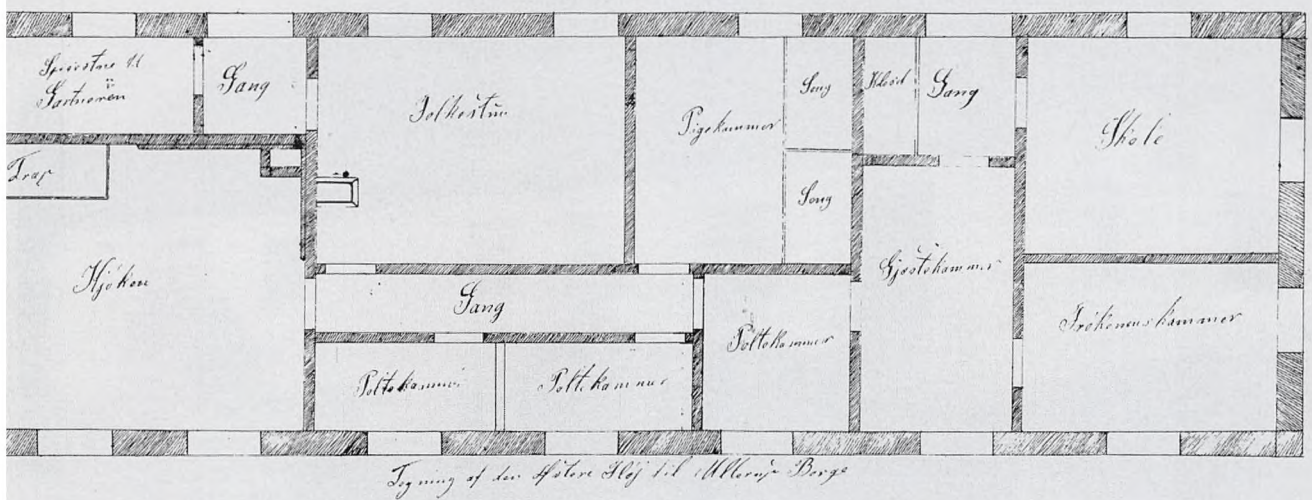 Gartneren
Gang
Folkestue
Pigekammer
Seng
Gang
Skole
Trap
Seng
Kjøken
Gang
Gjæstekammer
Frökenenskammer
Poltekammer
Poltekammer
Poltekammer
Tegning af den Østere Fløj til Ullerup Borge